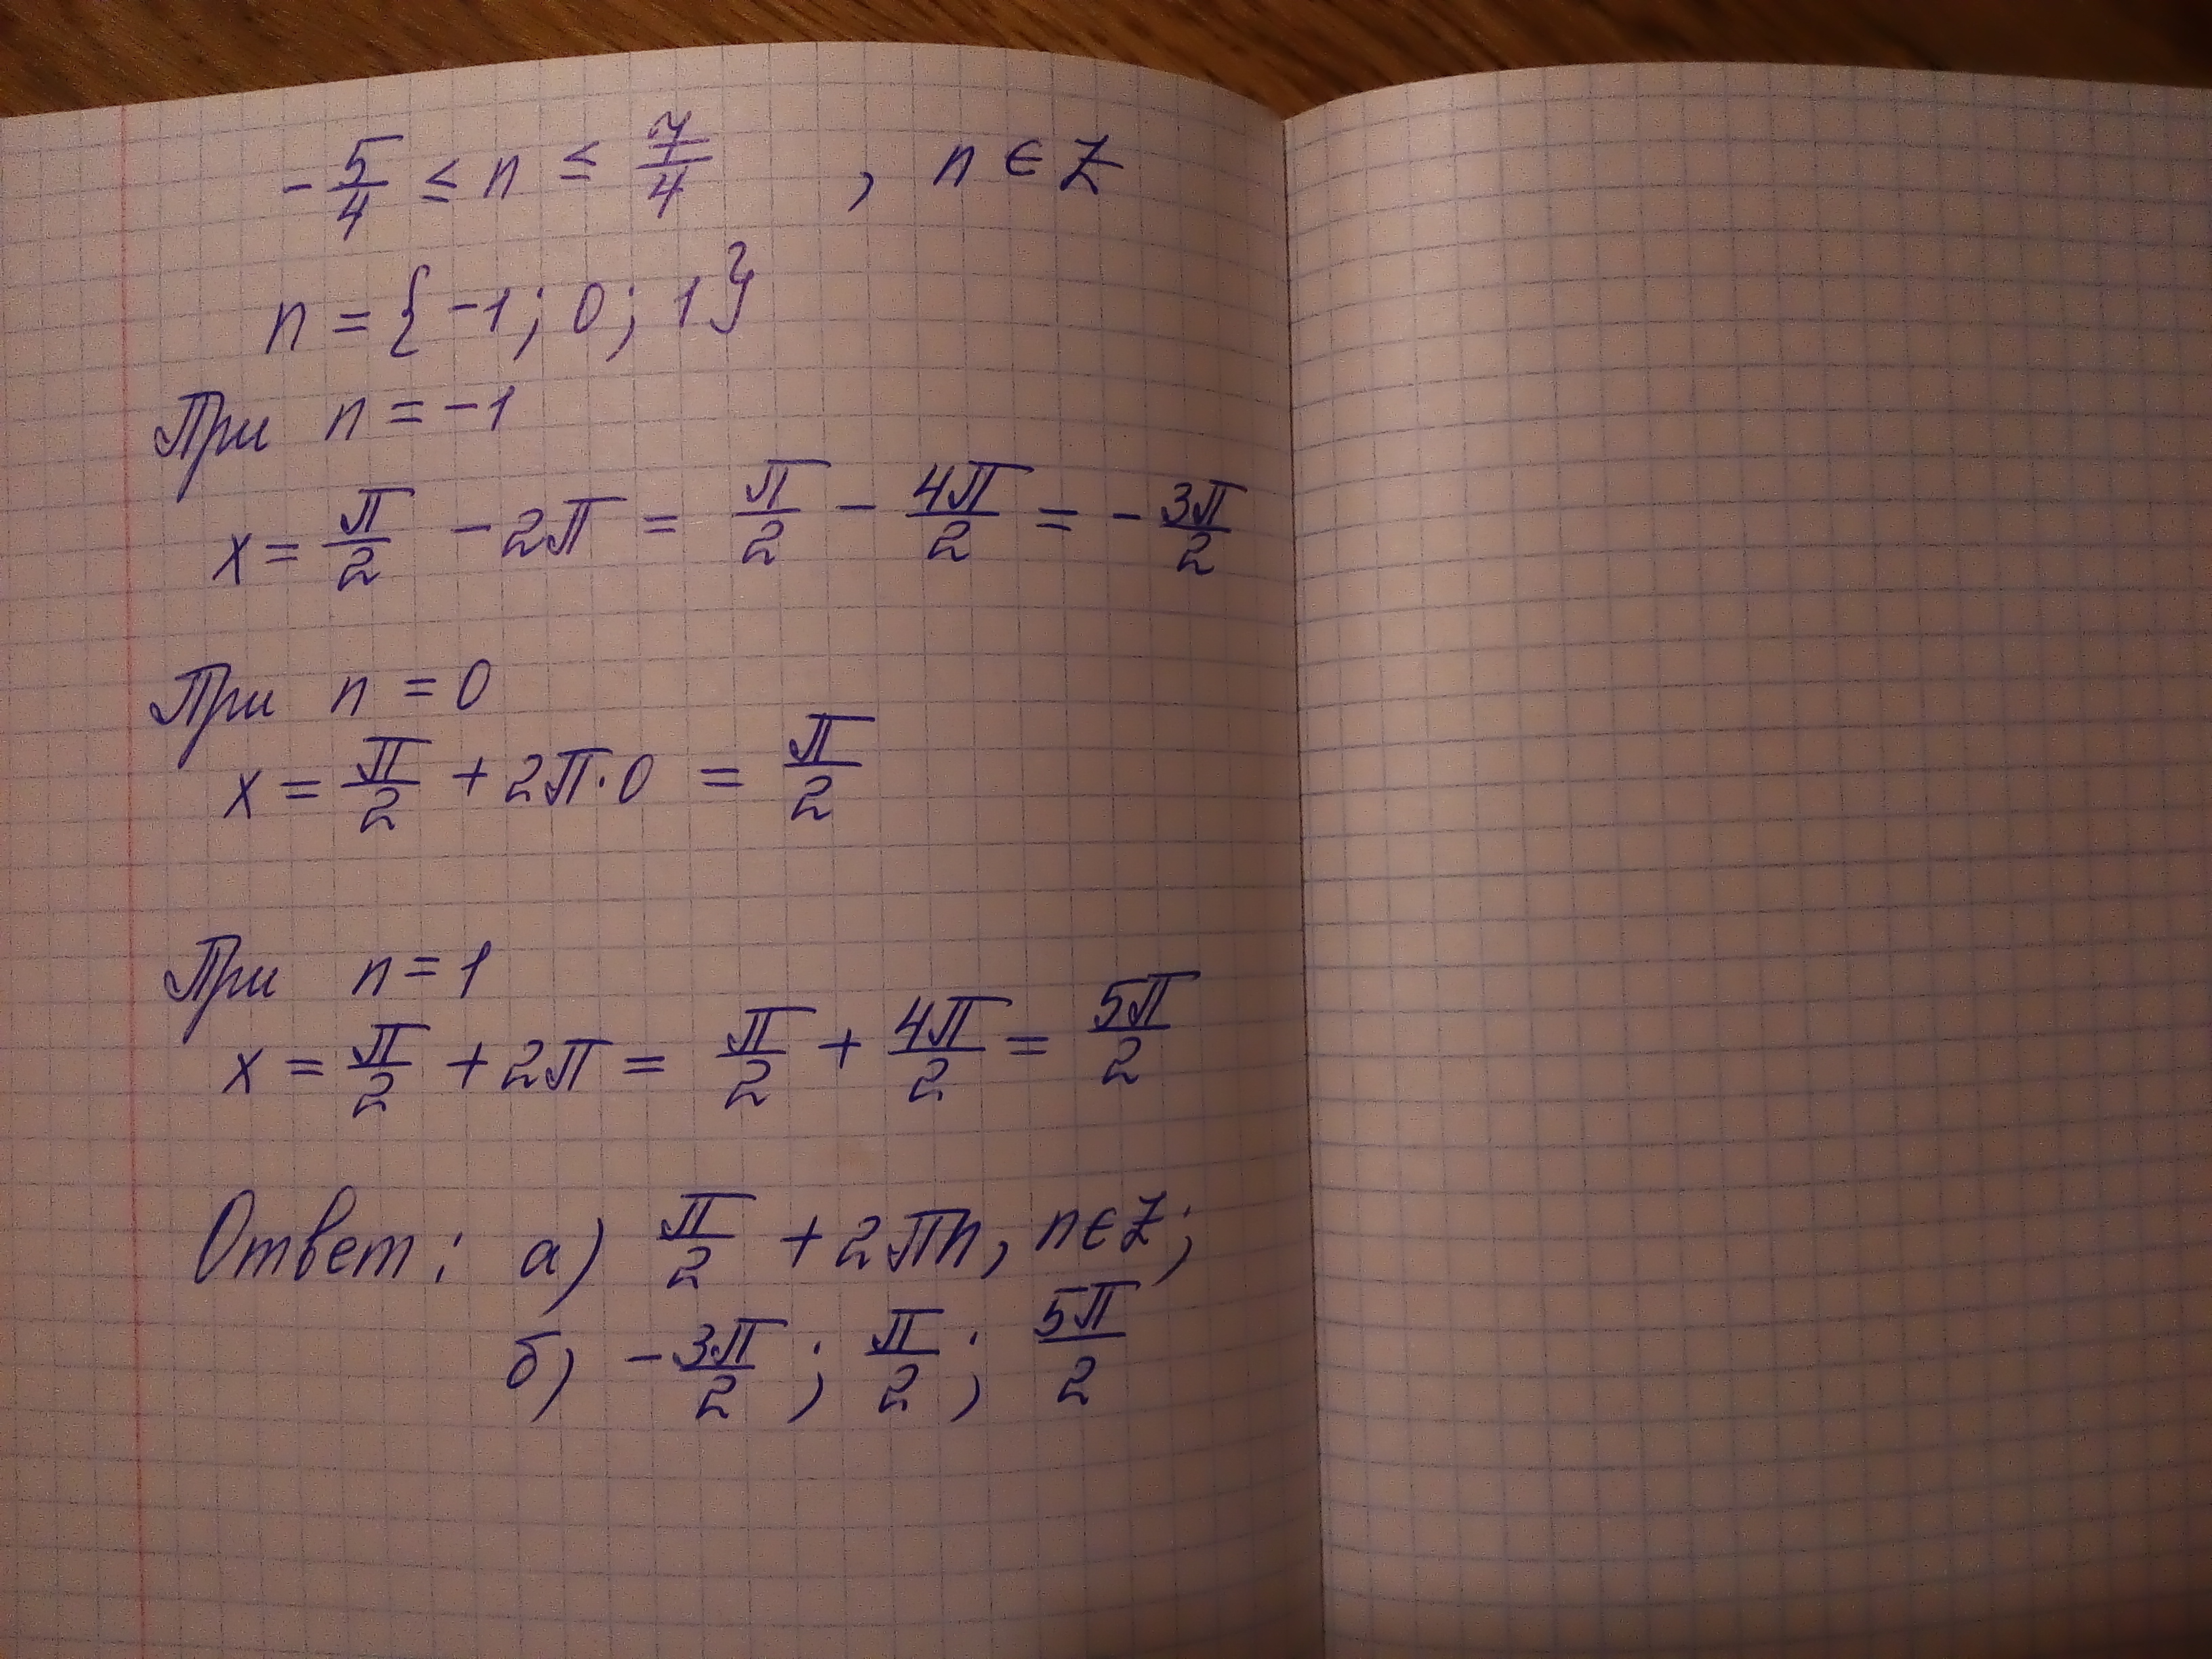 -5/4 ≤ n ≤ 7/4 , n ∈ Z
n = {-1; 0; 1}
При n = -1
x = π/2 - 2π = π/2 - 4π/2 = -3π/2
При n = 0
x = π/2 + 2π·0 = π/2
При n = 1
x = π/2 + 2π = π/2 + 4π/2 = 5π/2
Ответ: а) π/2 + 2πn, n∈Z;
б) -3π/2; π/2; 5π/2